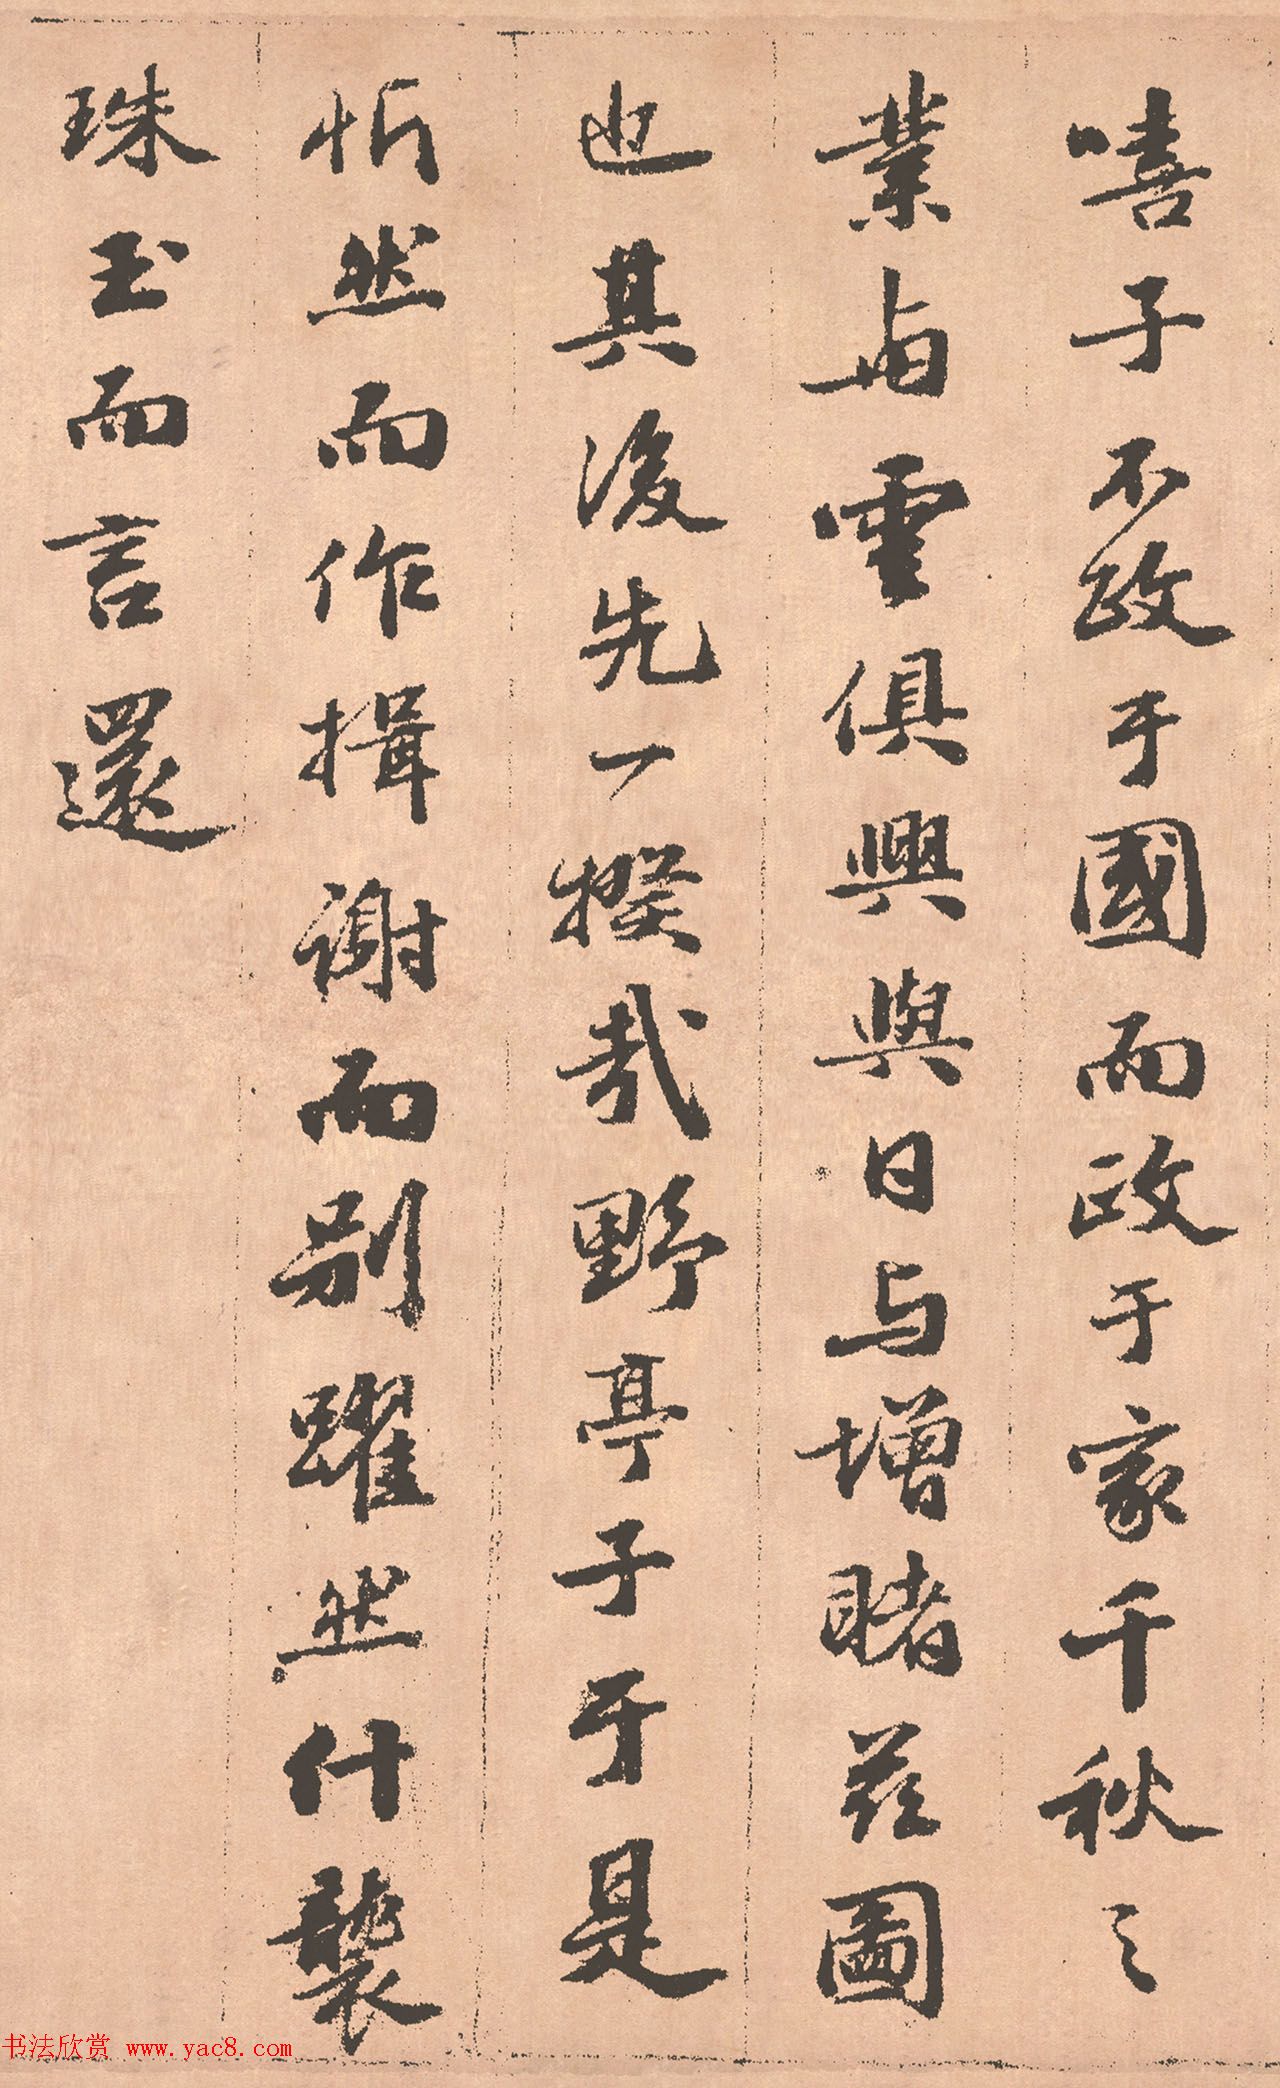 嘻子不政于國而政于家千秋之
業与雲俱興與日与增睹茲圖
也其後先一揆哉野亭子于是
忻然而作揖謝而别躍然什襲
珠玉而言還
书法欣赏 www.yac8.com